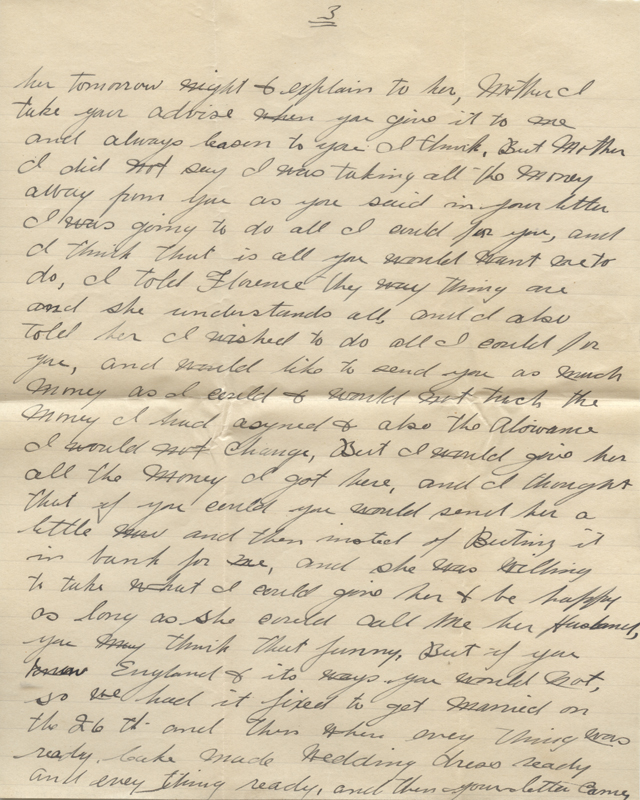 3
her tomorrow night & explain to her, Mother I
take your advise when you give it to me
and always leason to you I think. But Mother
I did not say I was taking all the Money
away from you as you said in your letter
I was going to do all I could for you, and
I think that is all you would want me to
do, I told Florence they way thing are
and she understands all, and I also
told her I wished to do all I could for
you, and would like to send you as much
Money as I could & would not tuch the
Money I had asyned & also the Alowance
I would not change, But I would give her
all the Money I got here, and I thought
that if you could you would send her a
little now and then insted of Puting it
in bank for me, and she was willing
to take what I could give her & be happy
as long as she could call me her Husband,
you may think that funny, But if you
know England & its ways you would not,
so we had it fixed to get Married on
the 26 th and then when every thing was
ready. Cake made Wedding dress ready
and every thing ready, and then your letter came,